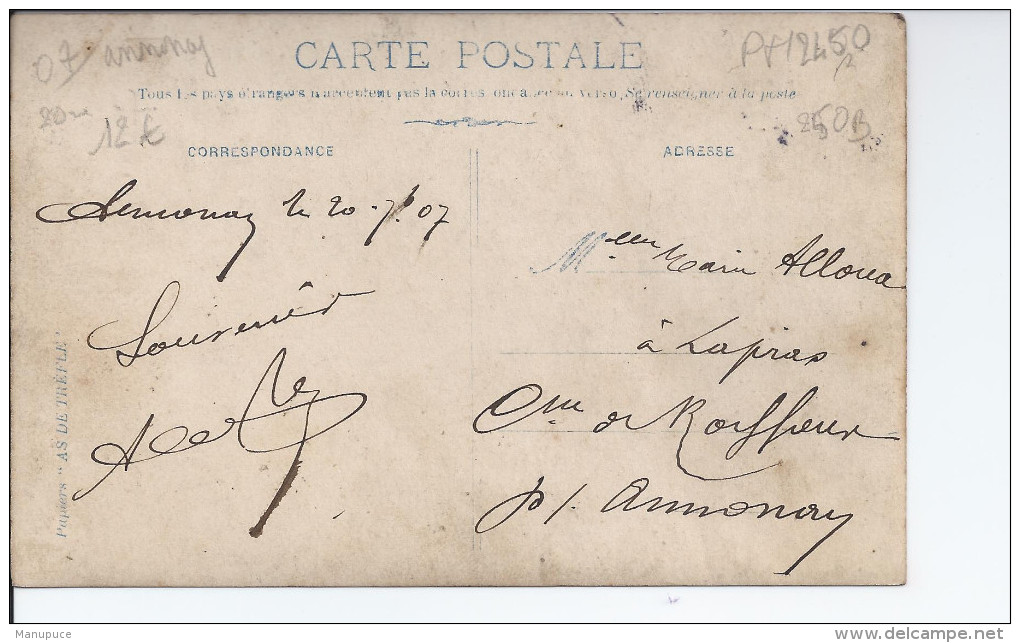 07 annonay
CARTE POSTALE
Tous les pays étrangers n'acceptent pas la correspondance au verso, Se renseigner à la poste
12 €
250B
CORRESPONDANCE
ADRESSE
Annonay le 20-7-07
Souvenir
Melle Marie Alloua
à Lapras
Cne de Roiffieux
p/. Annonay
Papiers " AS DE TRÈFLE "
Manupuce
delcampe.net